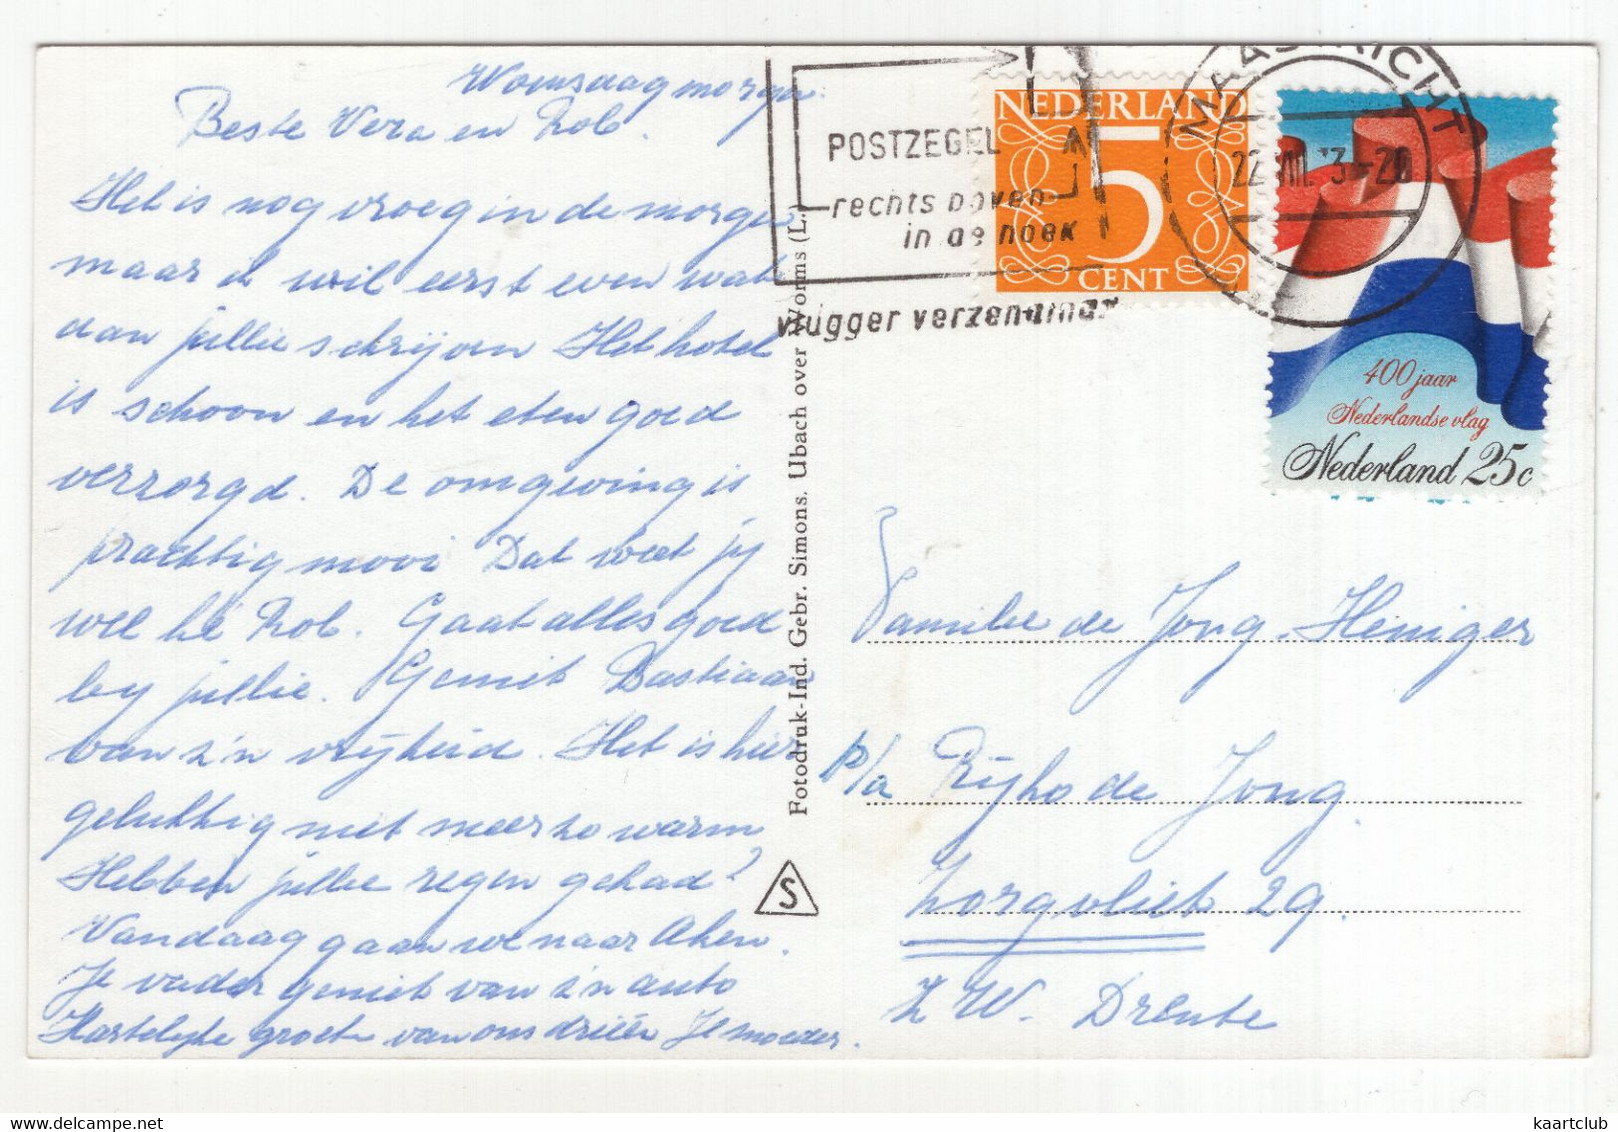 Woensdagmorgen.
Beste Vera en Rob.
Het is nog vroeg in de morgen
maar ik wil eerst even wat
aan jullie schrijven Het hotel
is schoon en het eten goed
verzorgd. De omgeving is
prachtig mooi Dat weet jy
wel hé Rob. Gaat alles goed
by jullie. Geniet Bastiaan
van z'n vrijheid. Het is hier
gelukkig niet meer zo warm
Hebben jullie regen gehad?
Vandaag gaan we naar Aken.
Je vader geniet van z'n auto
Hartelijke groet van ons drieën Je moeder.
Fotodruk-Ind. Gebr. Simons. Ubach over Worms (L.)
S
POSTZEGEL
rechts boven
in de hoek
vlugger verzendklaar
NEDERLAND
5
CENT
MAASTRICHT
22.VIII.73-20
400 jaar
Nederlandse vlag
Nederland 25c
Familie de Jong-Heniger
p/a Rijko de Jong.
Zorgvliet 29.
Z.W. Drente
kaartclub